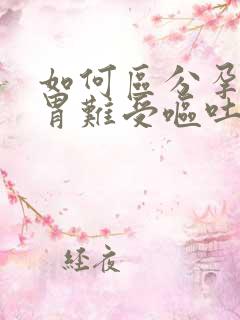 如何區分孕
胃難受嘔吐
經夜